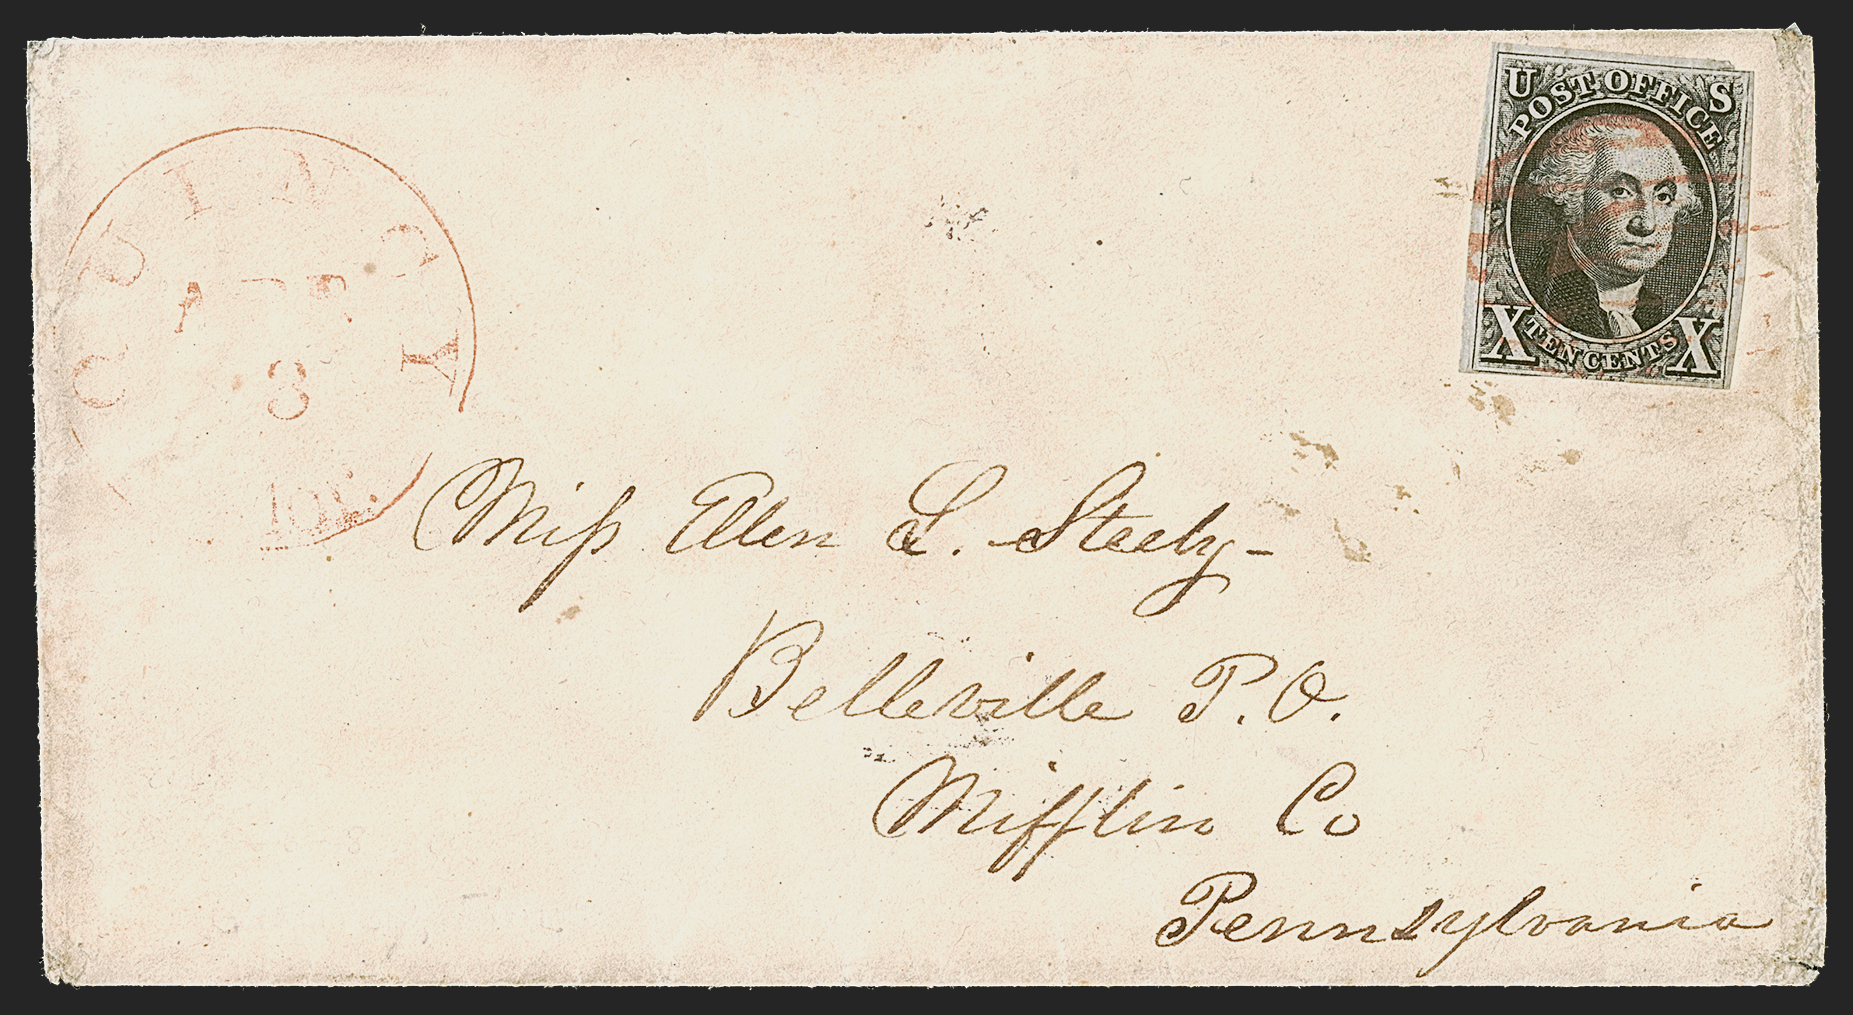 U S
POST OFFICE
X TEN CENTS X
QUINCY
APR
3
Ill.
Miss Ellen S. Steely-
Belleville P.O.
Mifflin Co
Pennsylvania